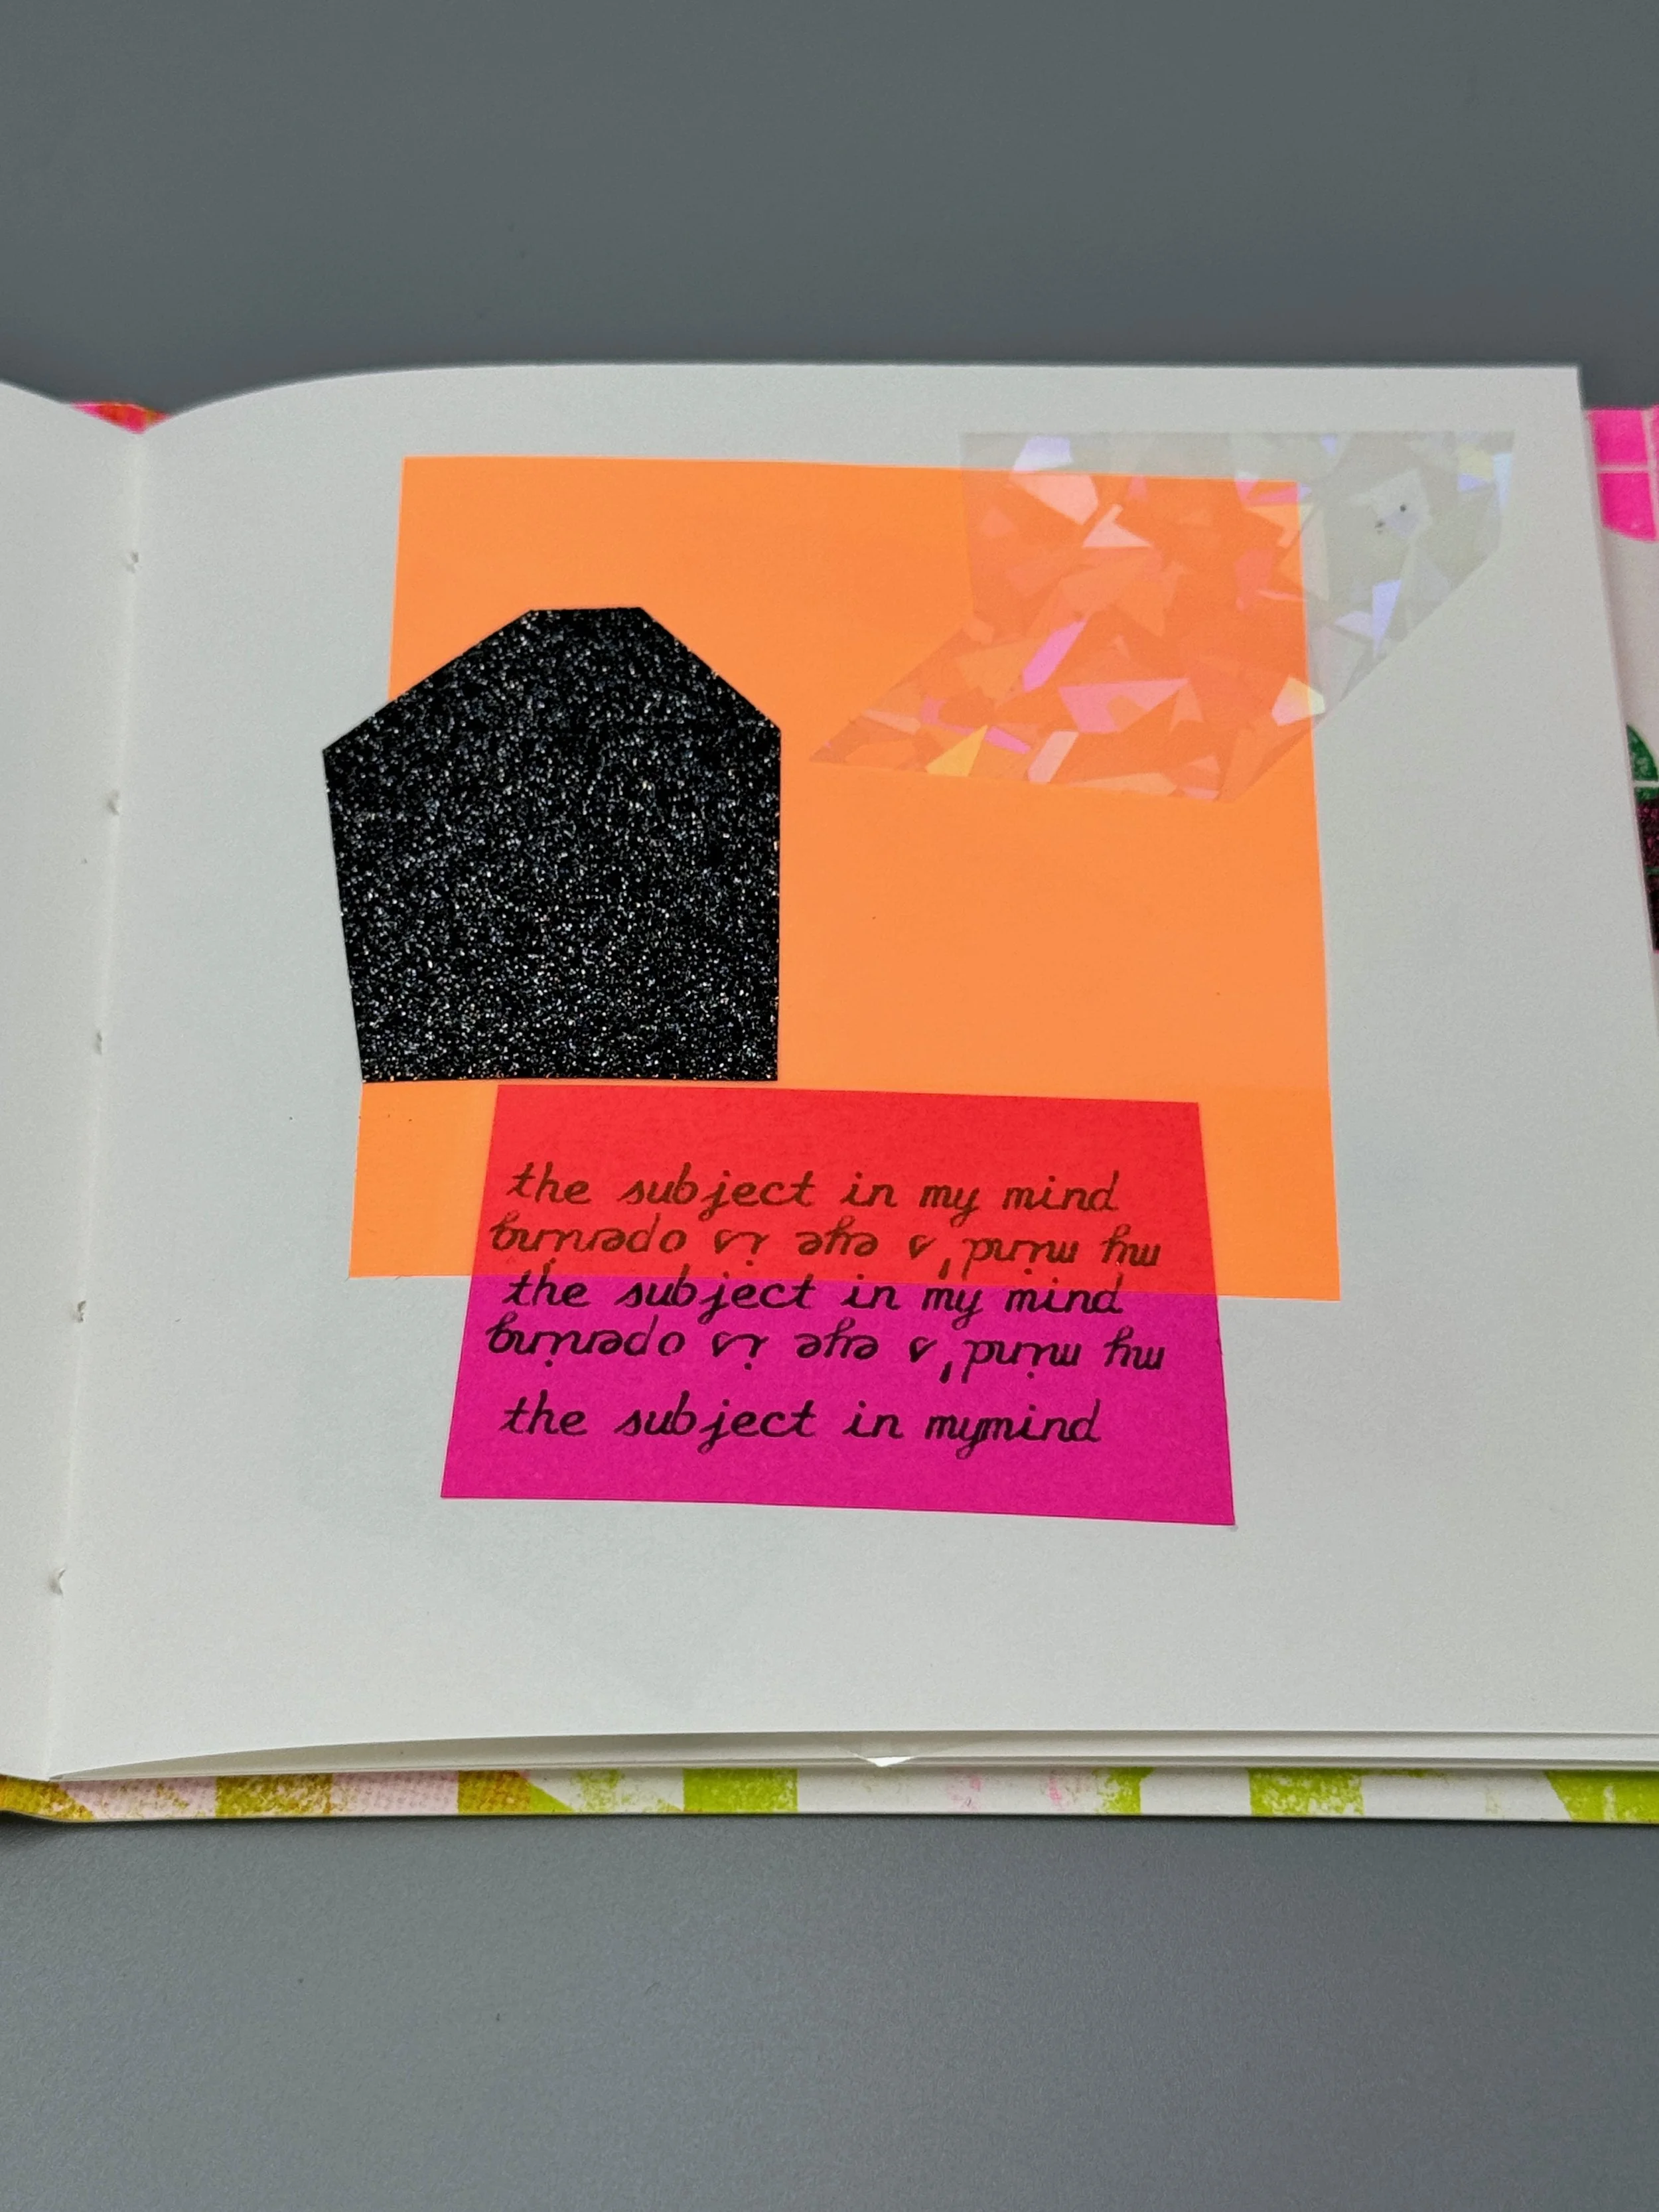 the subject in my mind
my mind's eye is opening
the subject in my mind
my mind's eye is opening
the subject in mymind